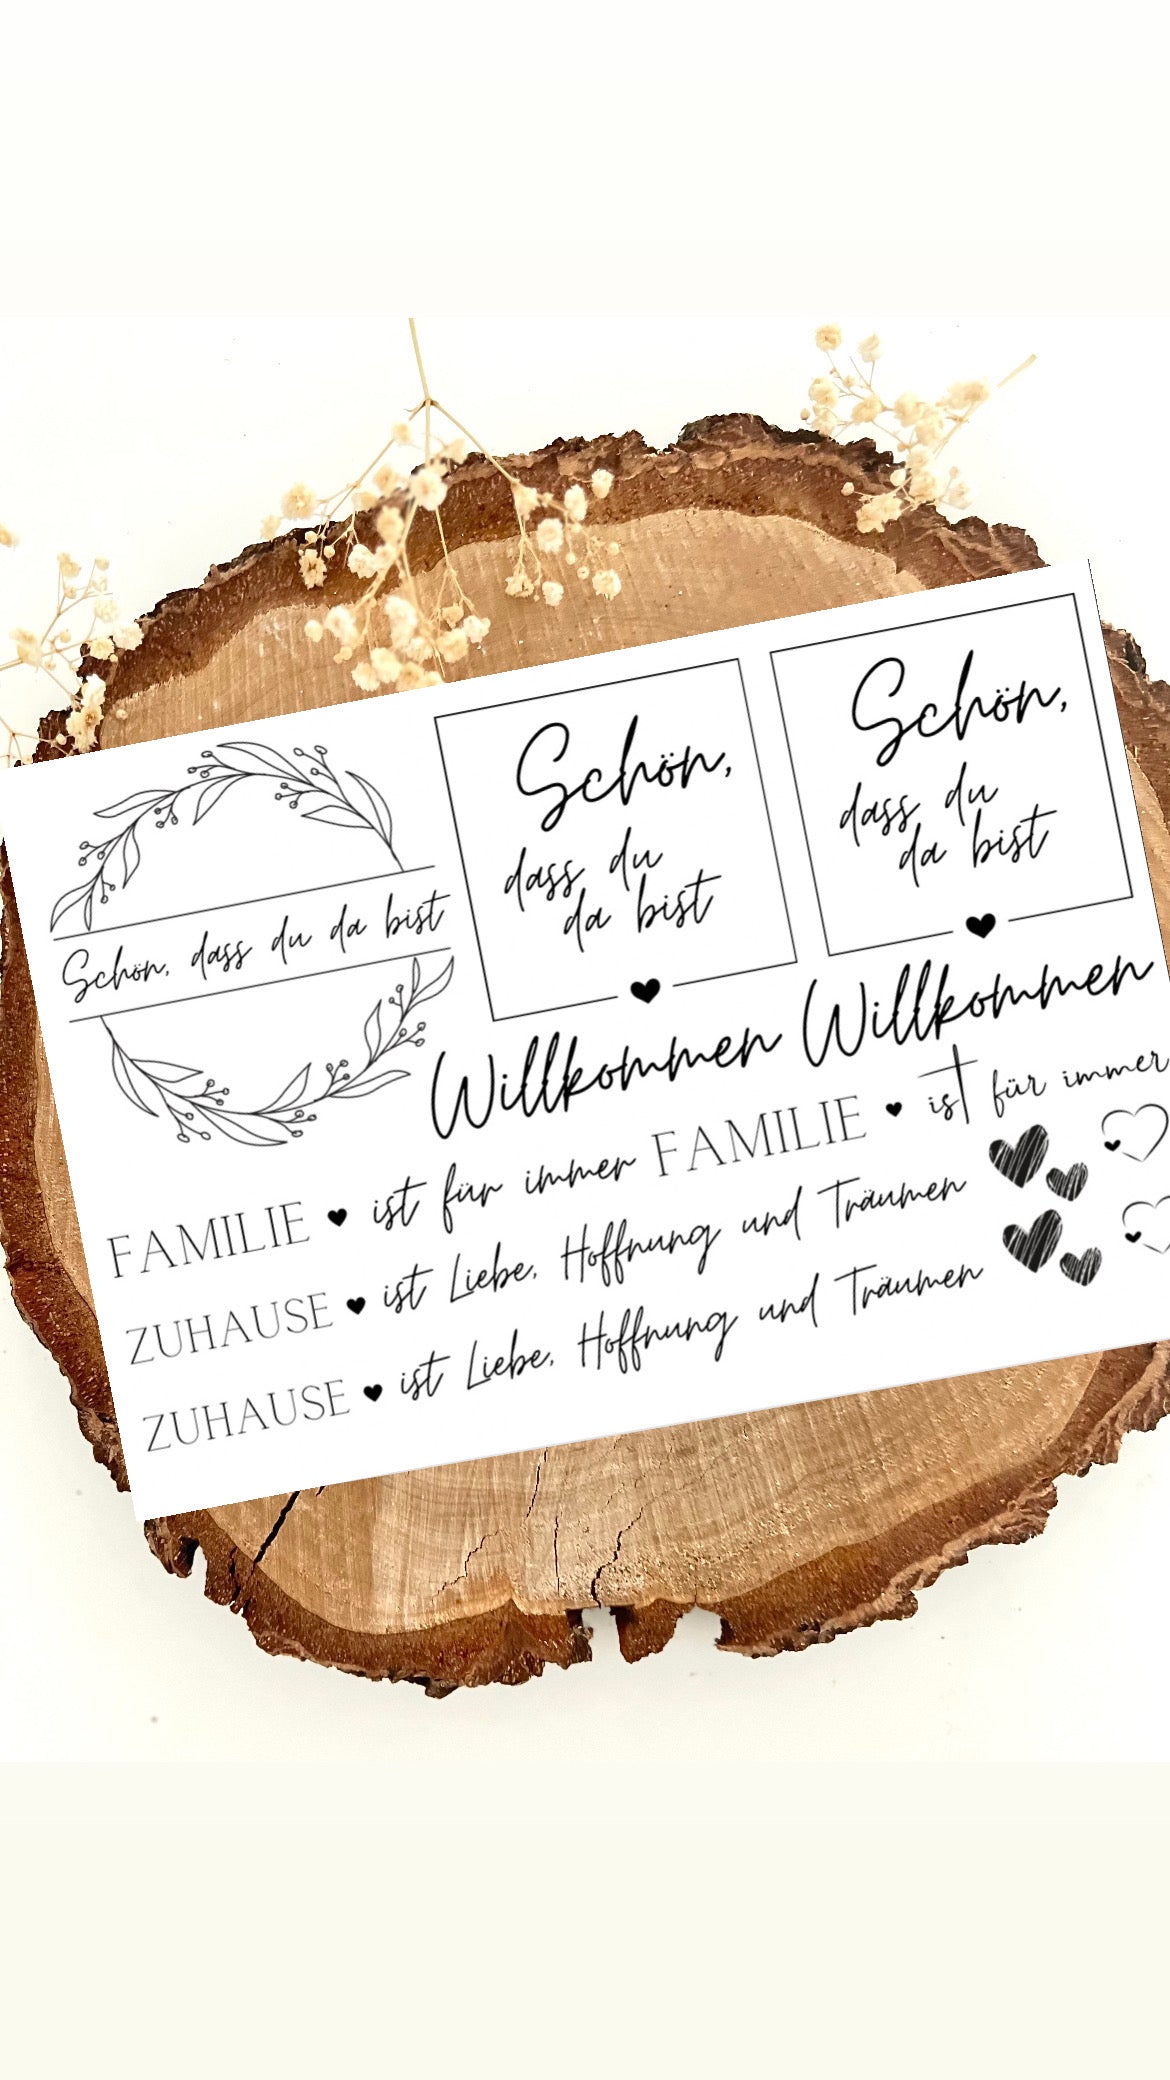 Schön, dass du da bist
Schön,
dass du
da bist
Schön,
dass du
da bist
Willkommen Willkommen
FAMILIE ♥ ist für immer FAMILIE ♥ ist für immer
ZUHAUSE ♥ ist Liebe, Hoffnung und Träumen
ZUHAUSE ♥ ist Liebe, Hoffnung und Träumen